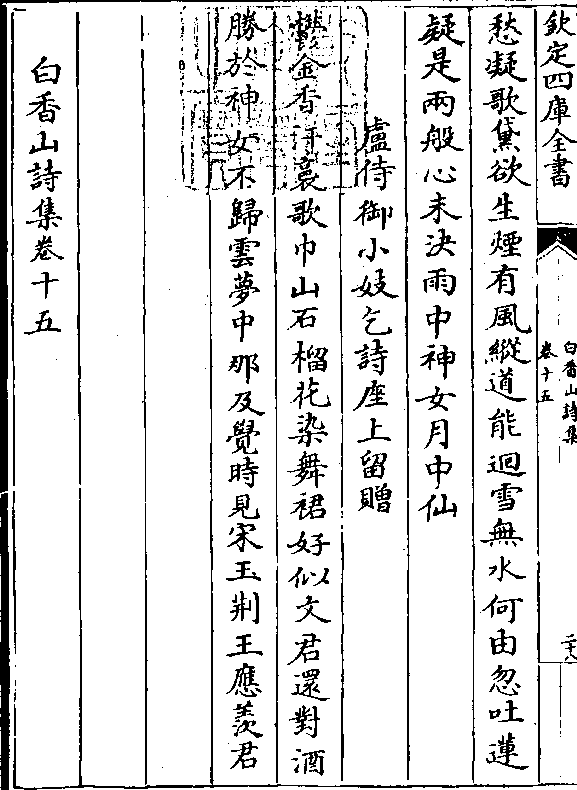 欽定四庫全書
白香山詩集
卷十五
二十八
愁凝歌黛欲生煙有風縱道能迴雪無水何由忽吐蓮
疑是兩般心未決雨中神女月中仙
盧侍御小妓乞詩座上留贈
鬱金香汗裛歌巾山石榴花染舞裙好似文君還對酒
勝於神女不歸雲夢中那及覺時見宋玉荆王應羨君
白香山詩集卷十五